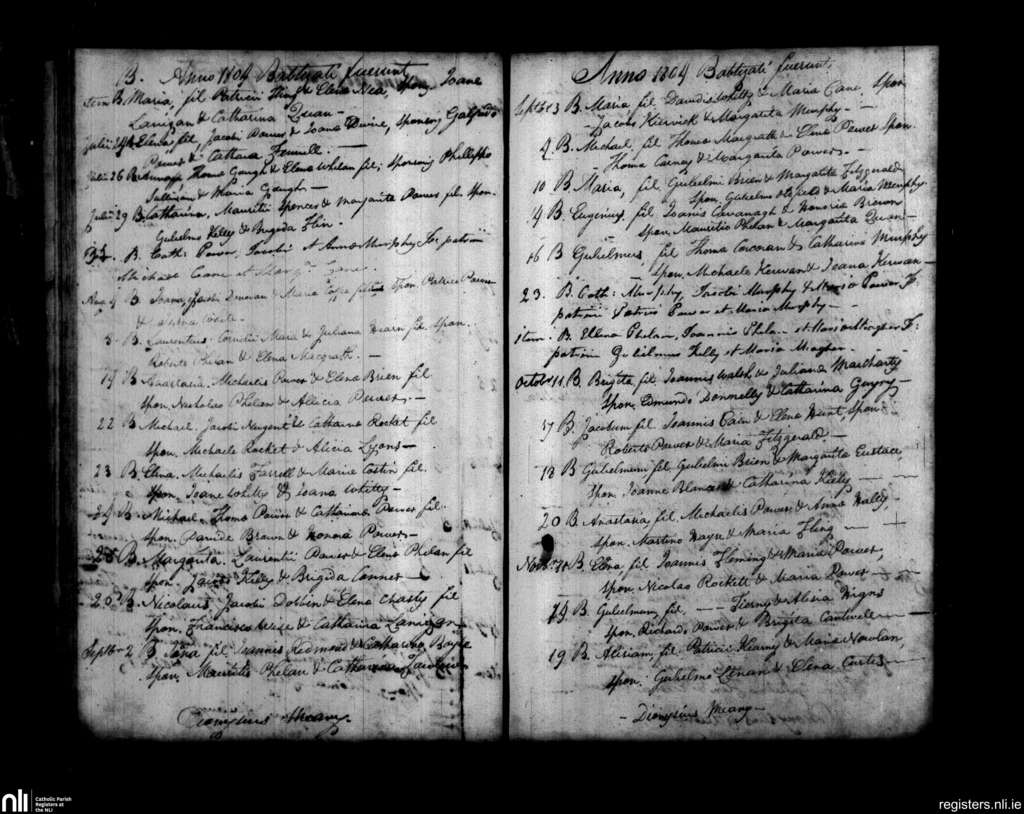 B. Anno 1804 Babtizati fuerunt
item B. Maria, fil Patricii King & Elena Nea, spon. Joane
Lanigan & Catharina Quan
Julii 24 B. Elenas fil, Jacobi Power & Joana Divine, sponsorij Galfrido
Power & Catharina Fennell.
Julii 26 B. Thoma Gough & Elena Whelan fil; sponsorij Phillippo
Sullivan & Maria Gough
Julii 29 B. Catharina, Mauritii Spencer & Margarita Power fil. spon.
Gulielmo Kelly & Brigida Flin.
B. Cath: Power, Jacobi et Anna Murphy F. patrini
Michael Cane et Marg.
Aug. 4 B Joana, Jacobi Donovan & Maria fil spon Patricio Power
&
5 B. Laurentius. Cornelii Mara & Juliana Hearn fil. spon.
Roberto Phelan & Elena Magrath.
19 B Anastasia. Michaelis Power & Elena Brien fil
spon. Nicholao Phelan & Allicia Power.
22 B Michael. Jacobi Nugent & Catharina Rocket fil
spon. Michaele Rocket & Alicia Lyons
23 B. Elena. Michaelis Farrell & Maria Costin fil.
spon. Joane Whitty & Joana Whitty
24 B. Michael. Thoma Power & Catharina Power fil.
spon. Davide Brown & Honora Power
25 B. Margarita. Laurentii Power & Elena Phelan fil
spon. Jacobo Kelly & Brigida Conner
B. Nicolaus, Jacobi Dobbin & Elena Chasty fil
spon. Francisco Wise & Catharina Lanigan
Septbr 2 B Joana fil. Joannis Redmond & Catharina Boyle
spon. Mauritio Phelan & Catharina
Dionysius Meany
Anno 1804 Babtizati fuerunt,
Septbr 3 B. Maria fil. Davidis Whitty & Maria Cane, Spon
Jacobo Kirwick & Margarita Murphy
4 B. Michael. fil Thoma Magrath & Elena Power Spon.
Thoma Carney & Margarita Power.
10 B Maria, fil, Gulielmi Brien & Margarita Fitzgerald
Spon. Gulielmo & Maria Murphy
14 B. Eugenius. fil Joanis Cavanagh & Honoria Brown
Spon. Mauritio Phelan & Margarita Quan
16 B Gulielmus fil Thoma Corcoran & Catharina Murphy
Spon. Michaele Kerwan & Joana Kerwan
23. B. Cath: Murphy Jacobi Murphy & Maria Power F.
patrini Patris Power et Maria Murphy
item. B. Ellena Phelan, Joannis Phelan et Maria F:
patrini Gulielmus Kelly et Maria
Octobr 11. B. Brigita fil Joannis Walsh & Juliana
Spon. Edmundo Donnelly & Catharina
17 B. Jacobum fil. Joannis Cain & Elena Hunt Spon
Roberto Power & Maria Fitzgerald
18 B Gulielmum fil. Gulielmi Brien & Margarita Eustace,
Spon. Joanne & Catharina Kielly
20 B Anastasia, fil. Michaelis Power & Anna Nally,
Spon. Martino & Maria Fling
Novbr B. Elena fil Joannis Fleming & Maria Power,
Spon. Nicolao Rockett & Maria Power
14 B Gulielmum, fil. — Tierny & Alicia
Spon. Richardo Power & Brigita Cantwell
19 B. Aliciam, fil Patricii Kearney & Maria Nowlan,
Spon. Gulielmo Lenan & Elena Curtis
Dionysius Meany
nli
Catholic Parish
Registers at
the NLI
registers.nli.ie